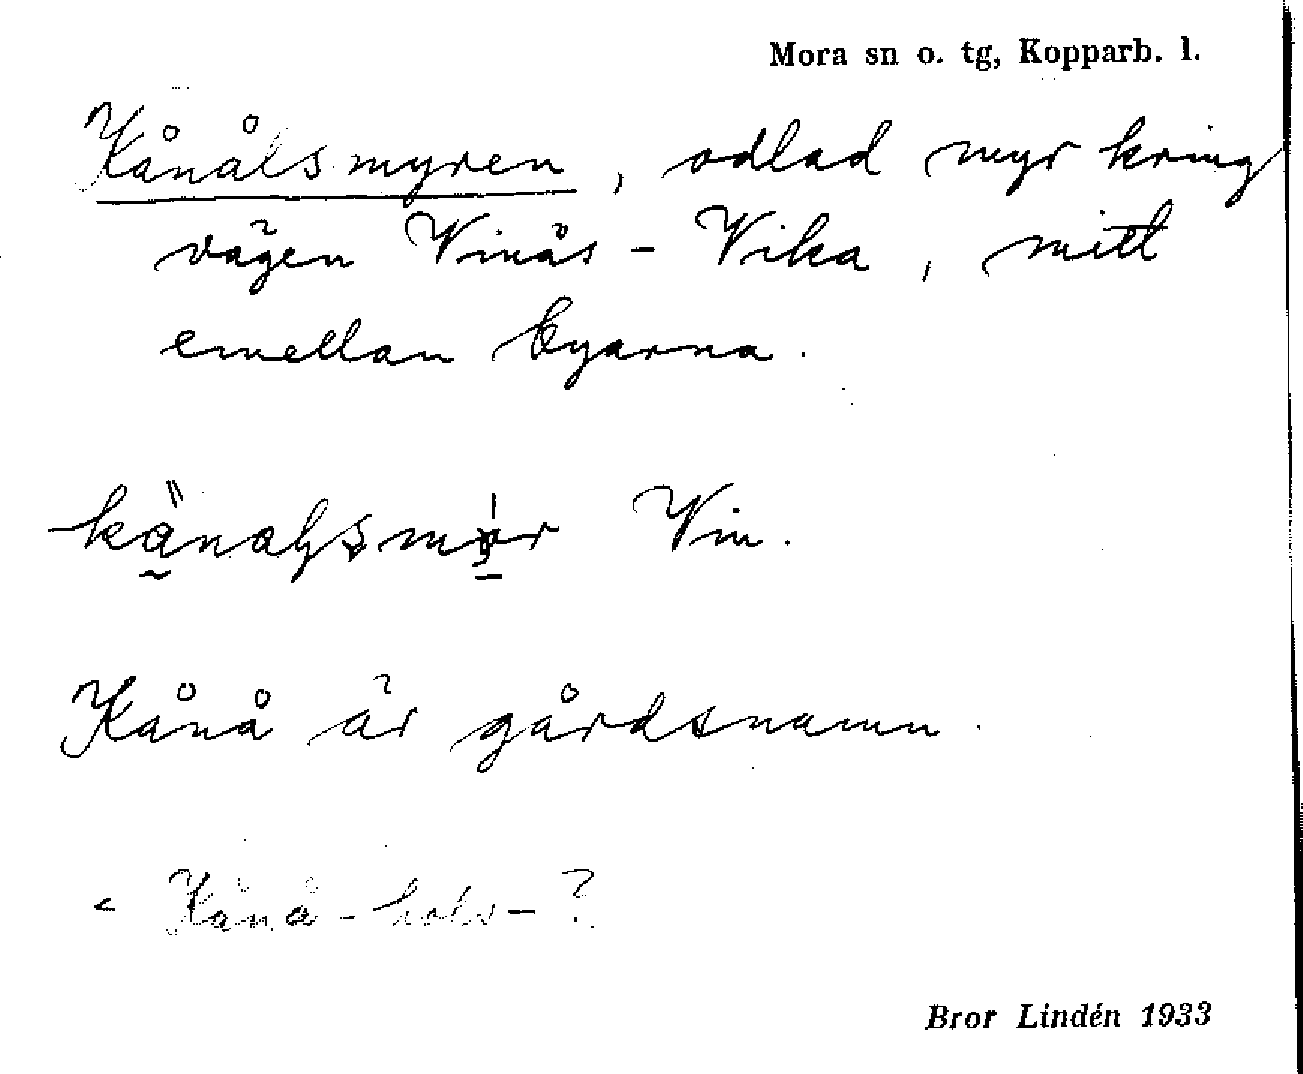 Mora sn o. tg, Kopparb. l.
Kånålsmyren, odlad myr kring
vägen Vinäs - Vika, mitt
emellan byarna.
Vin.
Kånå är gårdsnamn.
< Kånå - hols - ?
Bror Lindén 1933